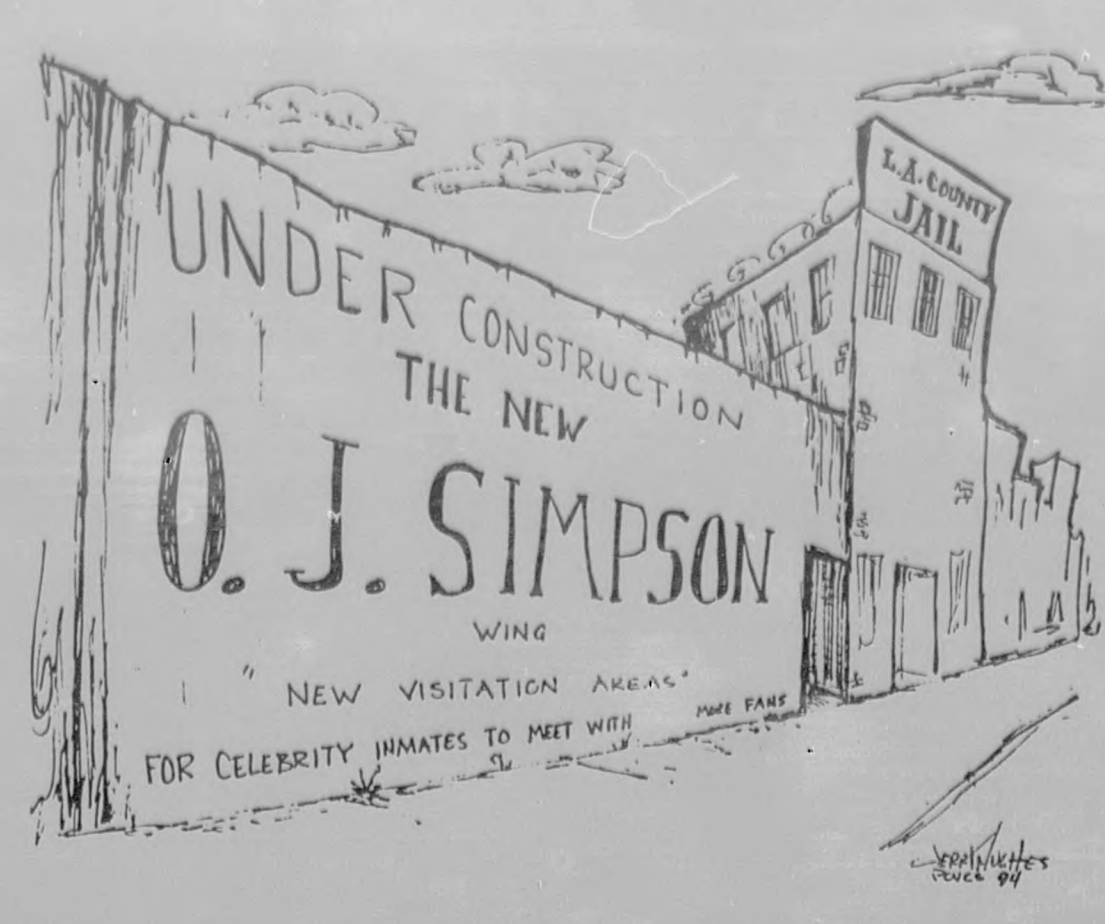 L.A. COUNTY
JAIL
UNDER CONSTRUCTION
THE NEW
O. J. SIMPSON
WING
"NEW VISITATION AREAS"
FOR CELEBRITY INMATES TO MEET WITH MORE FANS
JERRY HUGHES
94